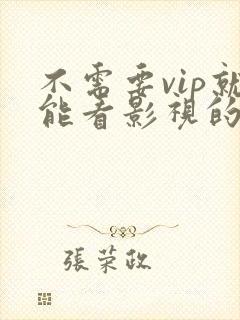 不需要vip就
能看影視的
張荣政